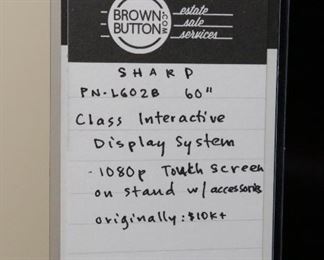 BROWN
BUTTON
.COM
estate
sale
services
SHARP
PN-L602B 60"
Class Interactive
Display System
- 1080p Touch Screen
on stand w/ accessories
originally: $10K+